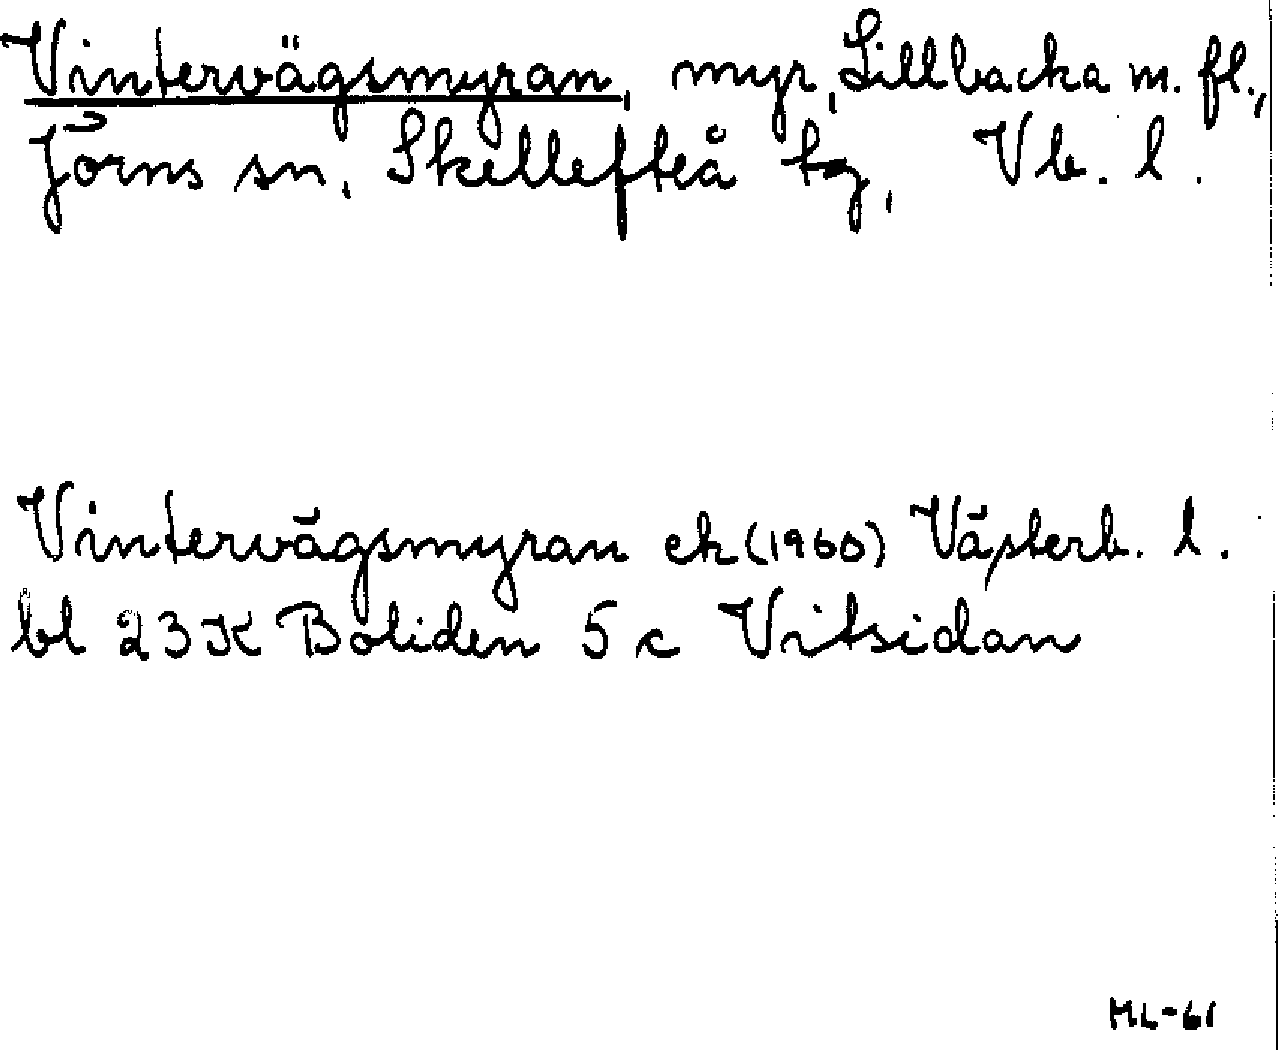 Vintervägsmyran, myr, Lillbacka m. fl.,
Jörns sn, Skellefteå tg, Vb. l.
Vintervägsmyran ek (1960) Västerb. l.
bl 23 K Boliden 5 c Vitsidan
ML-61